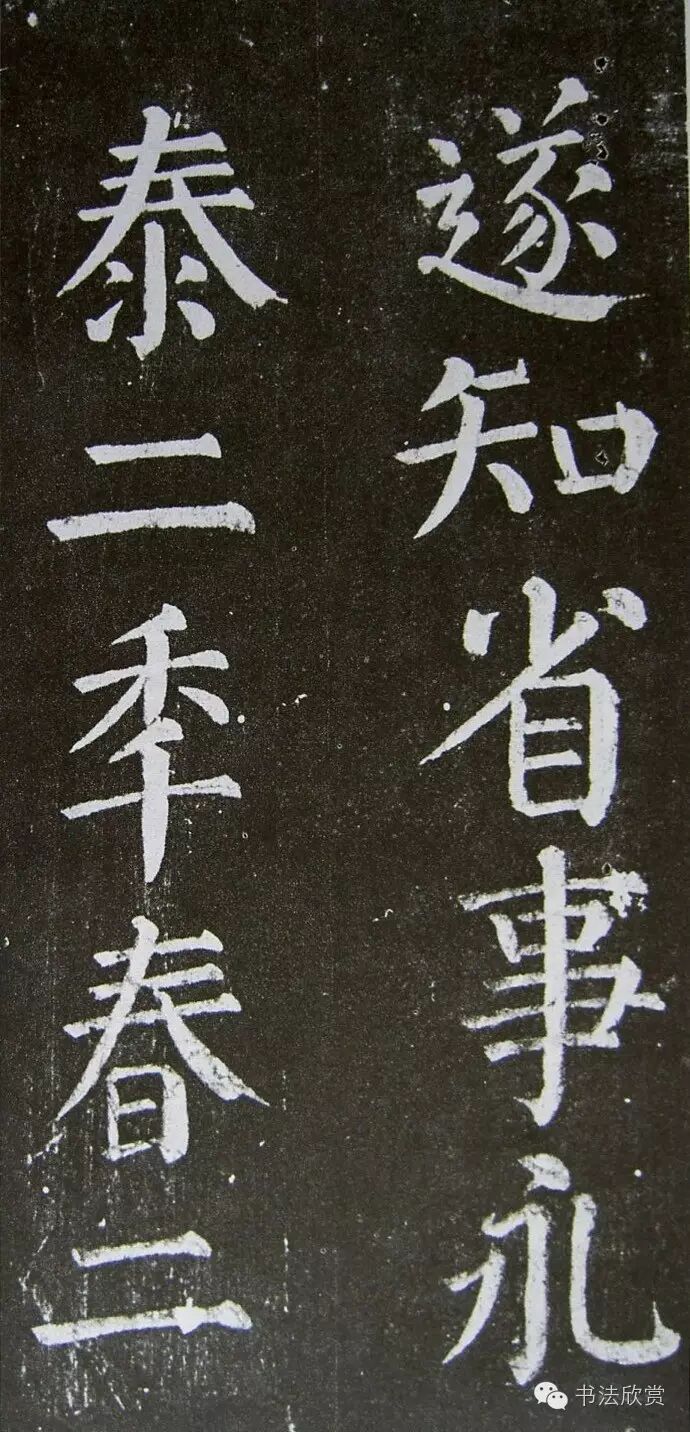 遂知省事永
泰二年春二
书法欣赏